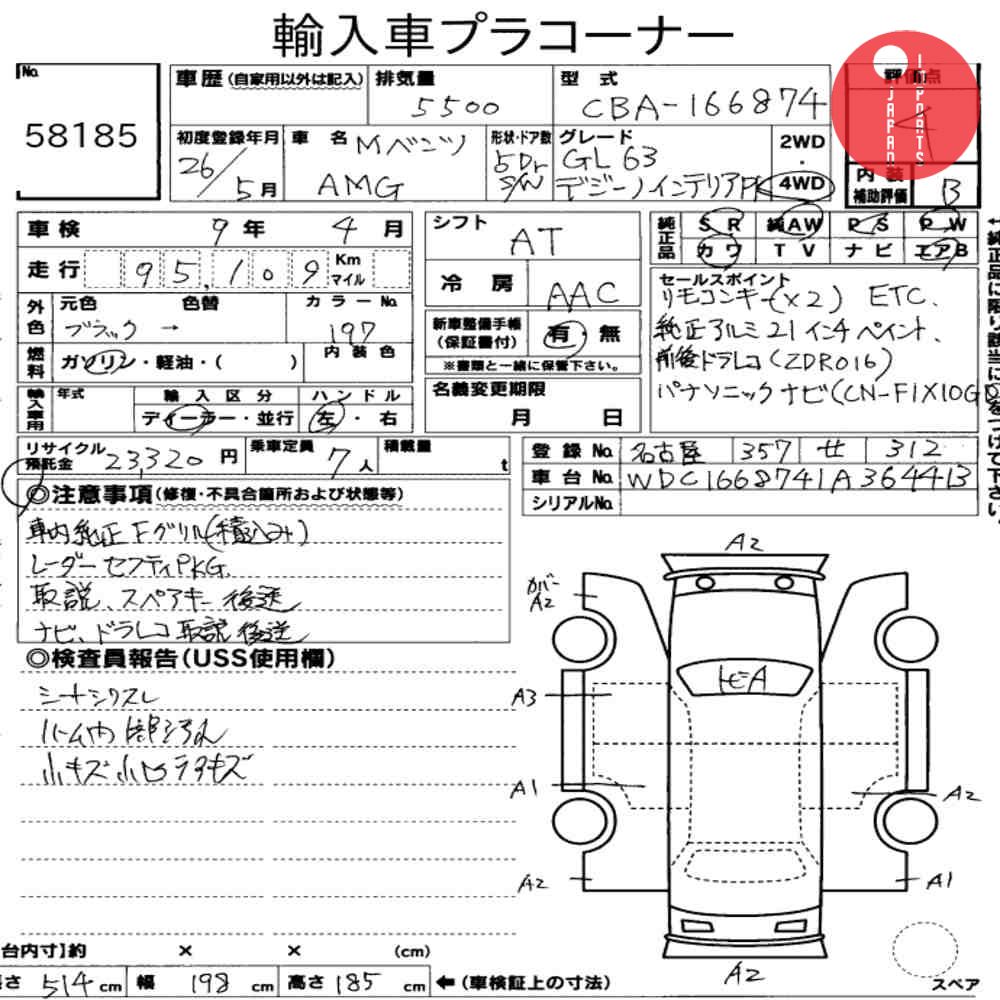 輸入車プラコーナー
JAPAN IMPORTS
No. 58185
車歴(自家用以外は記入) 排気量 5500 型式 CBA-166874 評価点 4
初度登録年月 26/5月 車名 Mベンツ AMG 形状・ドア数 5Dr S/W グレード GL63 デジーノインテリアPK 2WD・4WD 内装補助評価 B
車検 9年 4月
走行 95,109 Km マイル
外色 元色 ブラック → 色替 カラーNo. 197
燃料 ガソリン・軽油・( ) 内装色
輸入車用 年式 輸入区分 ディーラー・並行 ハンドル 左・右
シフト AT
冷房 AAC
新車整備手帳(保証書付) 有・無
※書類と一緒に保管下さい。
名義変更期限 月 日
純正品 SR 純AW PS PW
カワ TV ナビ エアB
セールスポイント
リモコンキー(×2) ETC.
純正アルミ21インチペイント、
前後ドラレコ(ZDR016)
パナソニックナビ(CN-F1X10GD
リサイクル預託金 23,320円 乗車定員 7人 積載量 t
登録No. 名古屋 357 せ 312
車台No. WDC1668741A364413
シリアルNo.
◎注意事項(修復・不具合箇所および状態等)
車内純正Fグリル(積込み)
レーダーセフティPKG.
取説、スペアキー後送
ナビ、ドラレコ取説後送
◎検査員報告(USS使用欄)
シートシワスレ
小キズ
A2
カバーA2
A3
A1
A2
A2
A1
A2
スペア
台内寸】約 × × (cm)
長さ 514cm 幅 198cm 高さ 185cm ←(車検証上の寸法)